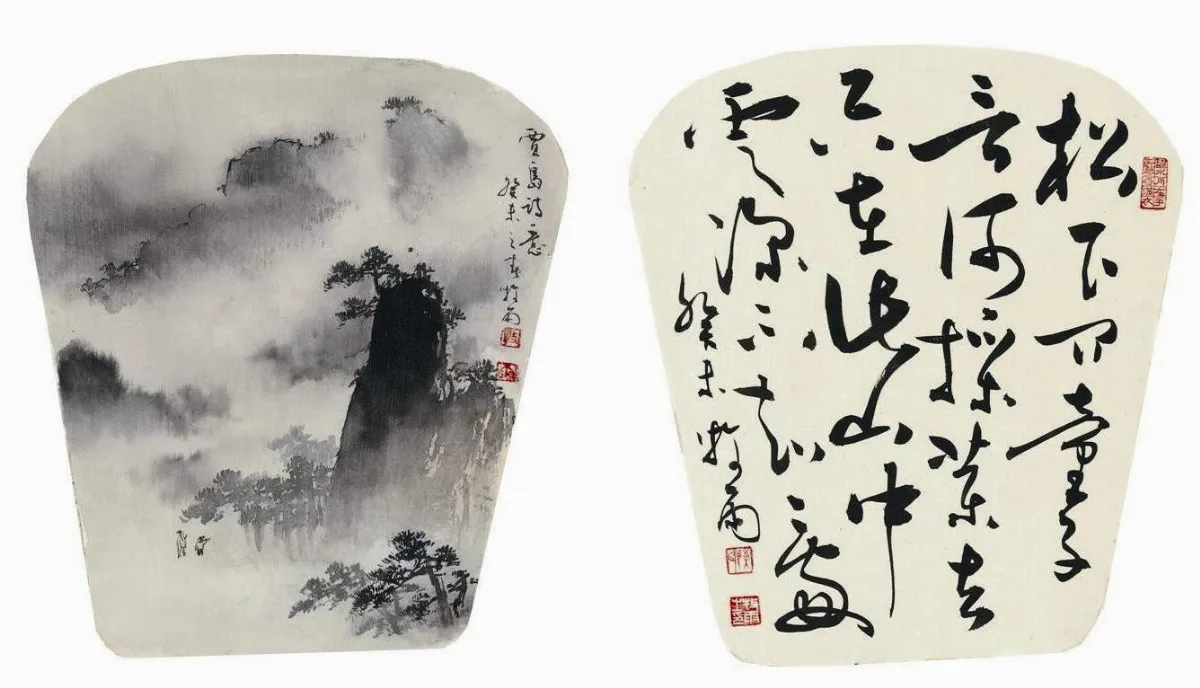 賈島詩意
癸未之春牧雨
松下问童子
言师採药去
只在此山中
雲深不知處
癸未牧雨